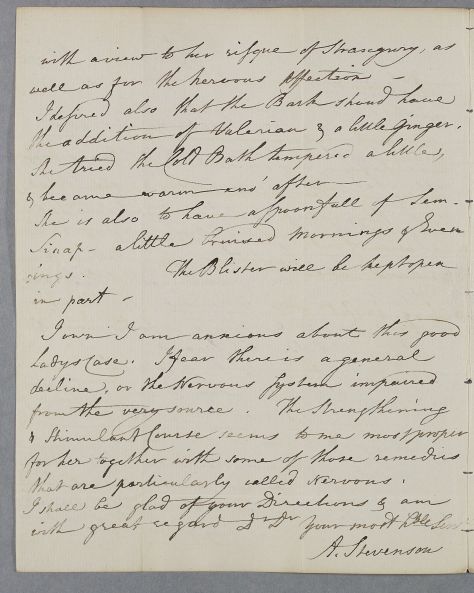 with a view to her risque of Strangury, as
well as for the Nervous Affection –
I desired also that the Bark should have
the addition of Valerian & a little Ginger.
She tried the Cold Bath tempered a little,
& became warm and after
She is also to have a spoonfull of Sem-
Sinap – a little bruised Mornings & Even
ings. The Blister will be kept open
in part –
I own I am anxious about this good
Ladys Case. I fear there is a general
decline, or the Nervous System impaired
from the very source. The Strengthening
& Stimulant Course seems to me most proper
for her together with some of those remedies
that are particularly called Nervous.
I shall be glad of your Directions & am
with great regard D Dr Your most hble Servt
A. Stevenson